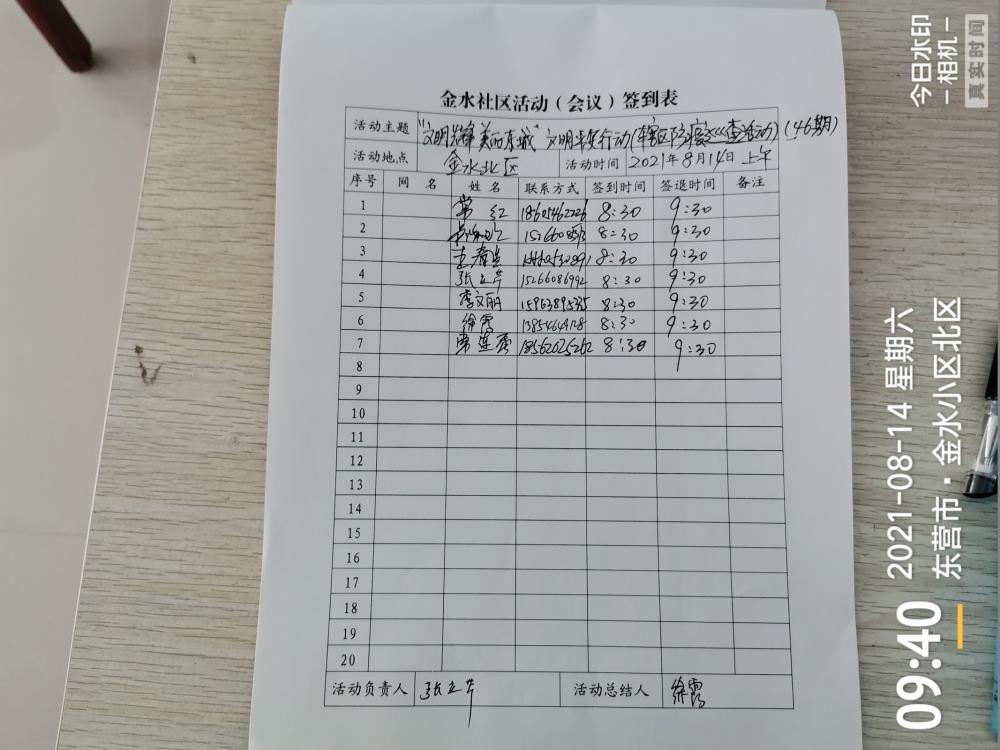 金水社区活动（会议）签到表
活动主题 "文明先锋 美丽东城" 文明平安行动(辖区防疫巡查活动)(46期)
活动地点 金水北区 活动时间 2021年8月14日 上午
序号 网 名 姓 名 联系方式 签到时间 签退时间 备注
1 常 红 18605462226 8:30 9:30
2 8:30 9:30
3 8:30 9:30
4 张立芹 15266086992 8:30 9:30
5 李文丽 8:30 9:30
6 徐霞 8:30 9:30
7 18562025262 8:30 9:30
8
9
10
11
12
13
14
15
16
17
18
19
20
活动负责人 张立芹 活动总结人 徐霞
今日水印
相机
真实时间
09:40
2021-08-14 星期六
东营市·金水小区北区